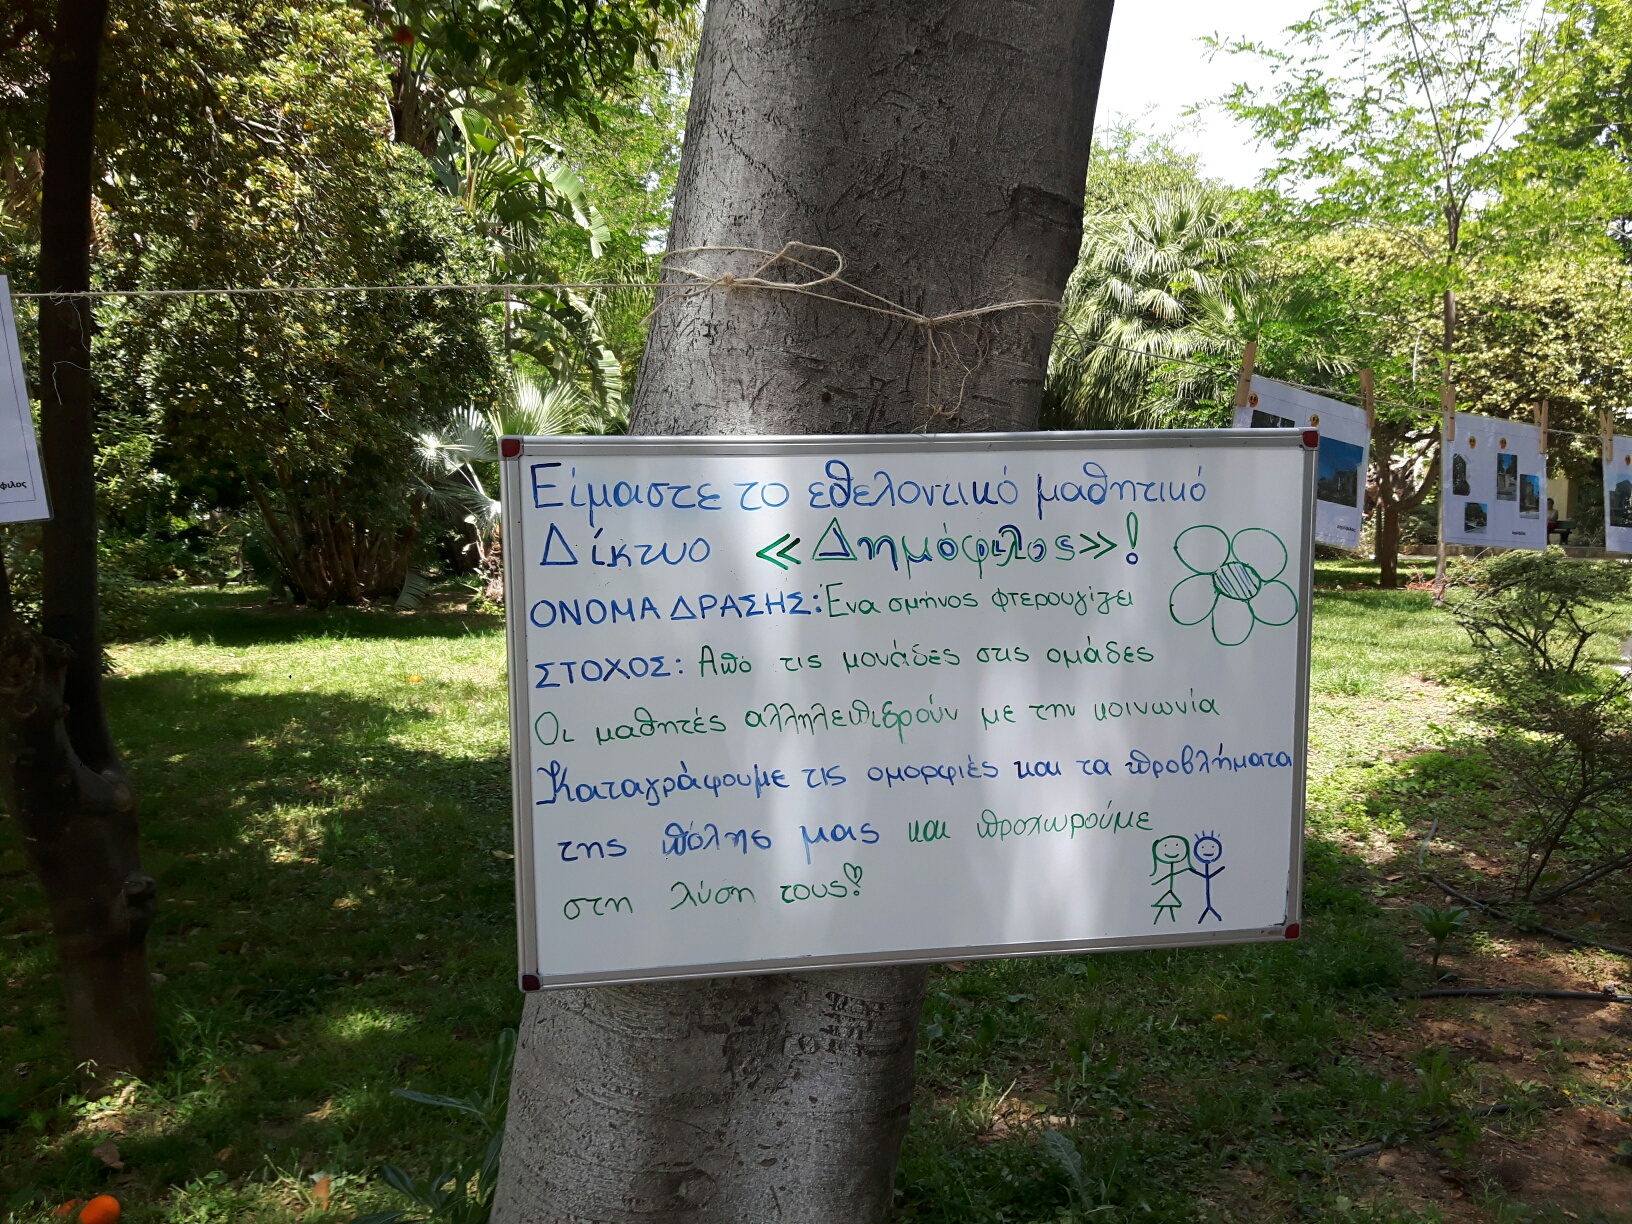 Είμαστε το εθελοντικό μαθητικό
Δίκτυο «Δημόφιλος»!
ΟΝΟΜΑ ΔΡΑΣΗΣ: Ένα σμήνος φτερουγίζει
ΣΤΟΧΟΣ: Από τις μονάδες στις ομάδες
Οι μαθητές αλληλεπιδρούν με την κοινωνία
Καταγράφουμε τις ομορφιές και τα προβλήματα
της πόλης μας και προχωρούμε
στη λύση τους!
φιλος